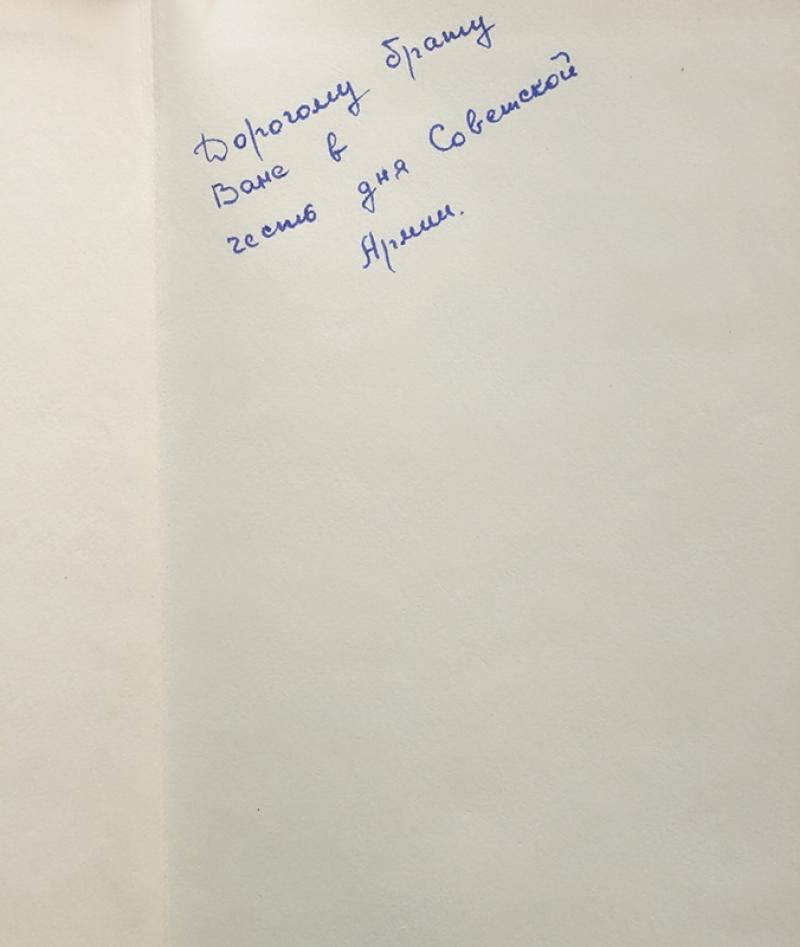 Дорогому брату
Ване в
честь дня Советской
Армии.